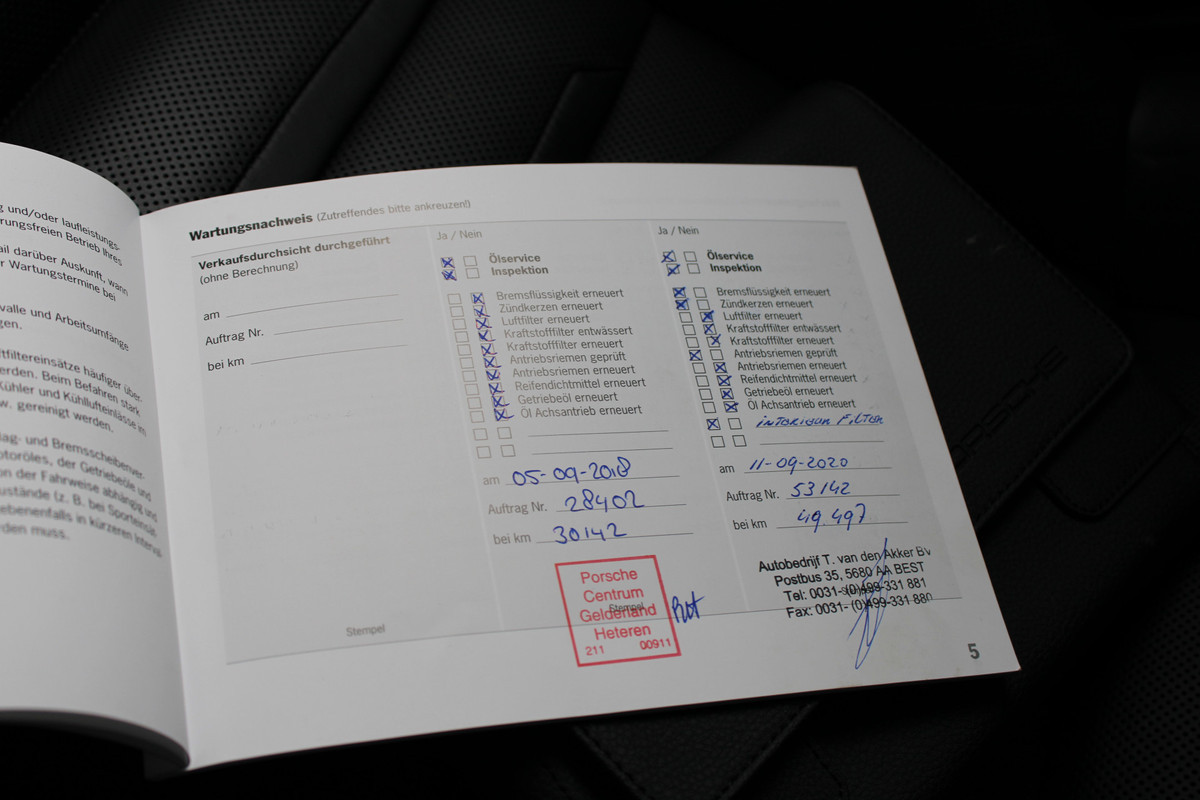 g und/oder laufleistungs-
rungsfreien Betrieb Ihres
ail darüber Auskunft, wann
r Wartungstermine bei
valle und Arbeitsumfänge
gen.
tfiltereinsätze häufiger über.
erden. Beim Befahren stark
Kühler und Kühllufteinlässe im
w. gereinigt werden.
lag- und Bremsscheibenver-
otoröles, der Getriebeöle und
on der Fahrweise abhängig und
ustände (z. B. bei Sporteinsät
ebenenfalls in kürzeren Interva
den muss.
Wartungsnachweis (Zutreffendes bitte ankreuzen!)
Verkaufsdurchsicht durchgeführt
(ohne Berechnung)
am
Auftrag Nr.
bei km
Stempel
Ja / Nein
Ölservice
Inspektion
Bremsflüssigkeit erneuert
Zündkerzen erneuert
Luftfilter erneuert
Kraftstofffilter entwässert
Kraftstofffilter erneuert
Antriebsriemen geprüft
Antriebsriemen erneuert
Reifendichtmittel erneuert
Getriebeöl erneuert
Öl Achsantrieb erneuert
am 05-09-2018
Auftrag Nr. 28402
bei km 30142
Porsche
Centrum
Gelderland
Stempel
Heteren
211 00911
Ja / Nein
Ölservice
Inspektion
Bremsflüssigkeit erneuert
Zündkerzen erneuert
Luftfilter erneuert
Kraftstofffilter entwässert
Kraftstofffilter erneuert
Antriebsriemen geprüft
Antriebsriemen erneuert
Reifendichtmittel erneuert
Getriebeöl erneuert
Öl Achsantrieb erneuert
INTERIEUR FILTER
am 11-09-2020
Auftrag Nr. 53142
bei km 49.497
Autobedrijf T. van den Akker Bv
Postbus 35, 5680 AA BEST
Tel: 0031-(0)499-331 881
Fax: 0031-(0)499-331 880
5